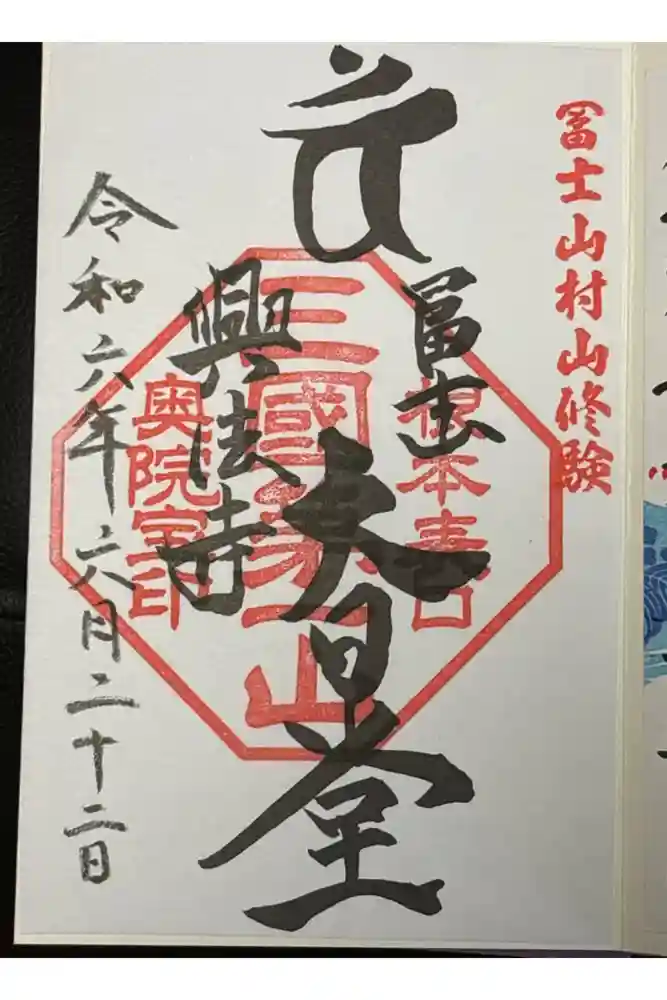 冨士山村山修験
根本表口
三國第一山
奥院宝印
冨士
大日堂
興法寺
令和六年六月二十二日